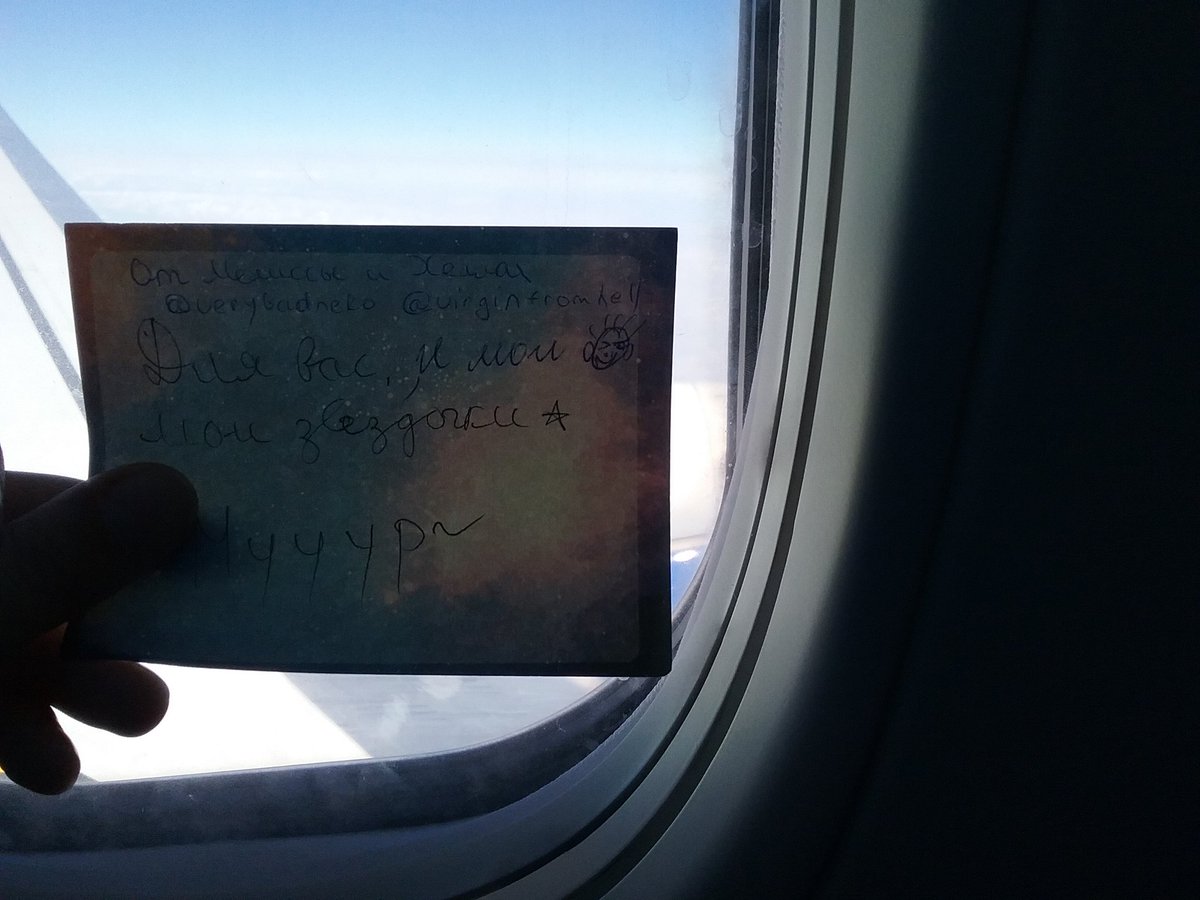 От Мелиссы и
@verybadneko @virginfromhell
Для вас, и мои
мои звездочки ☆
уууур~